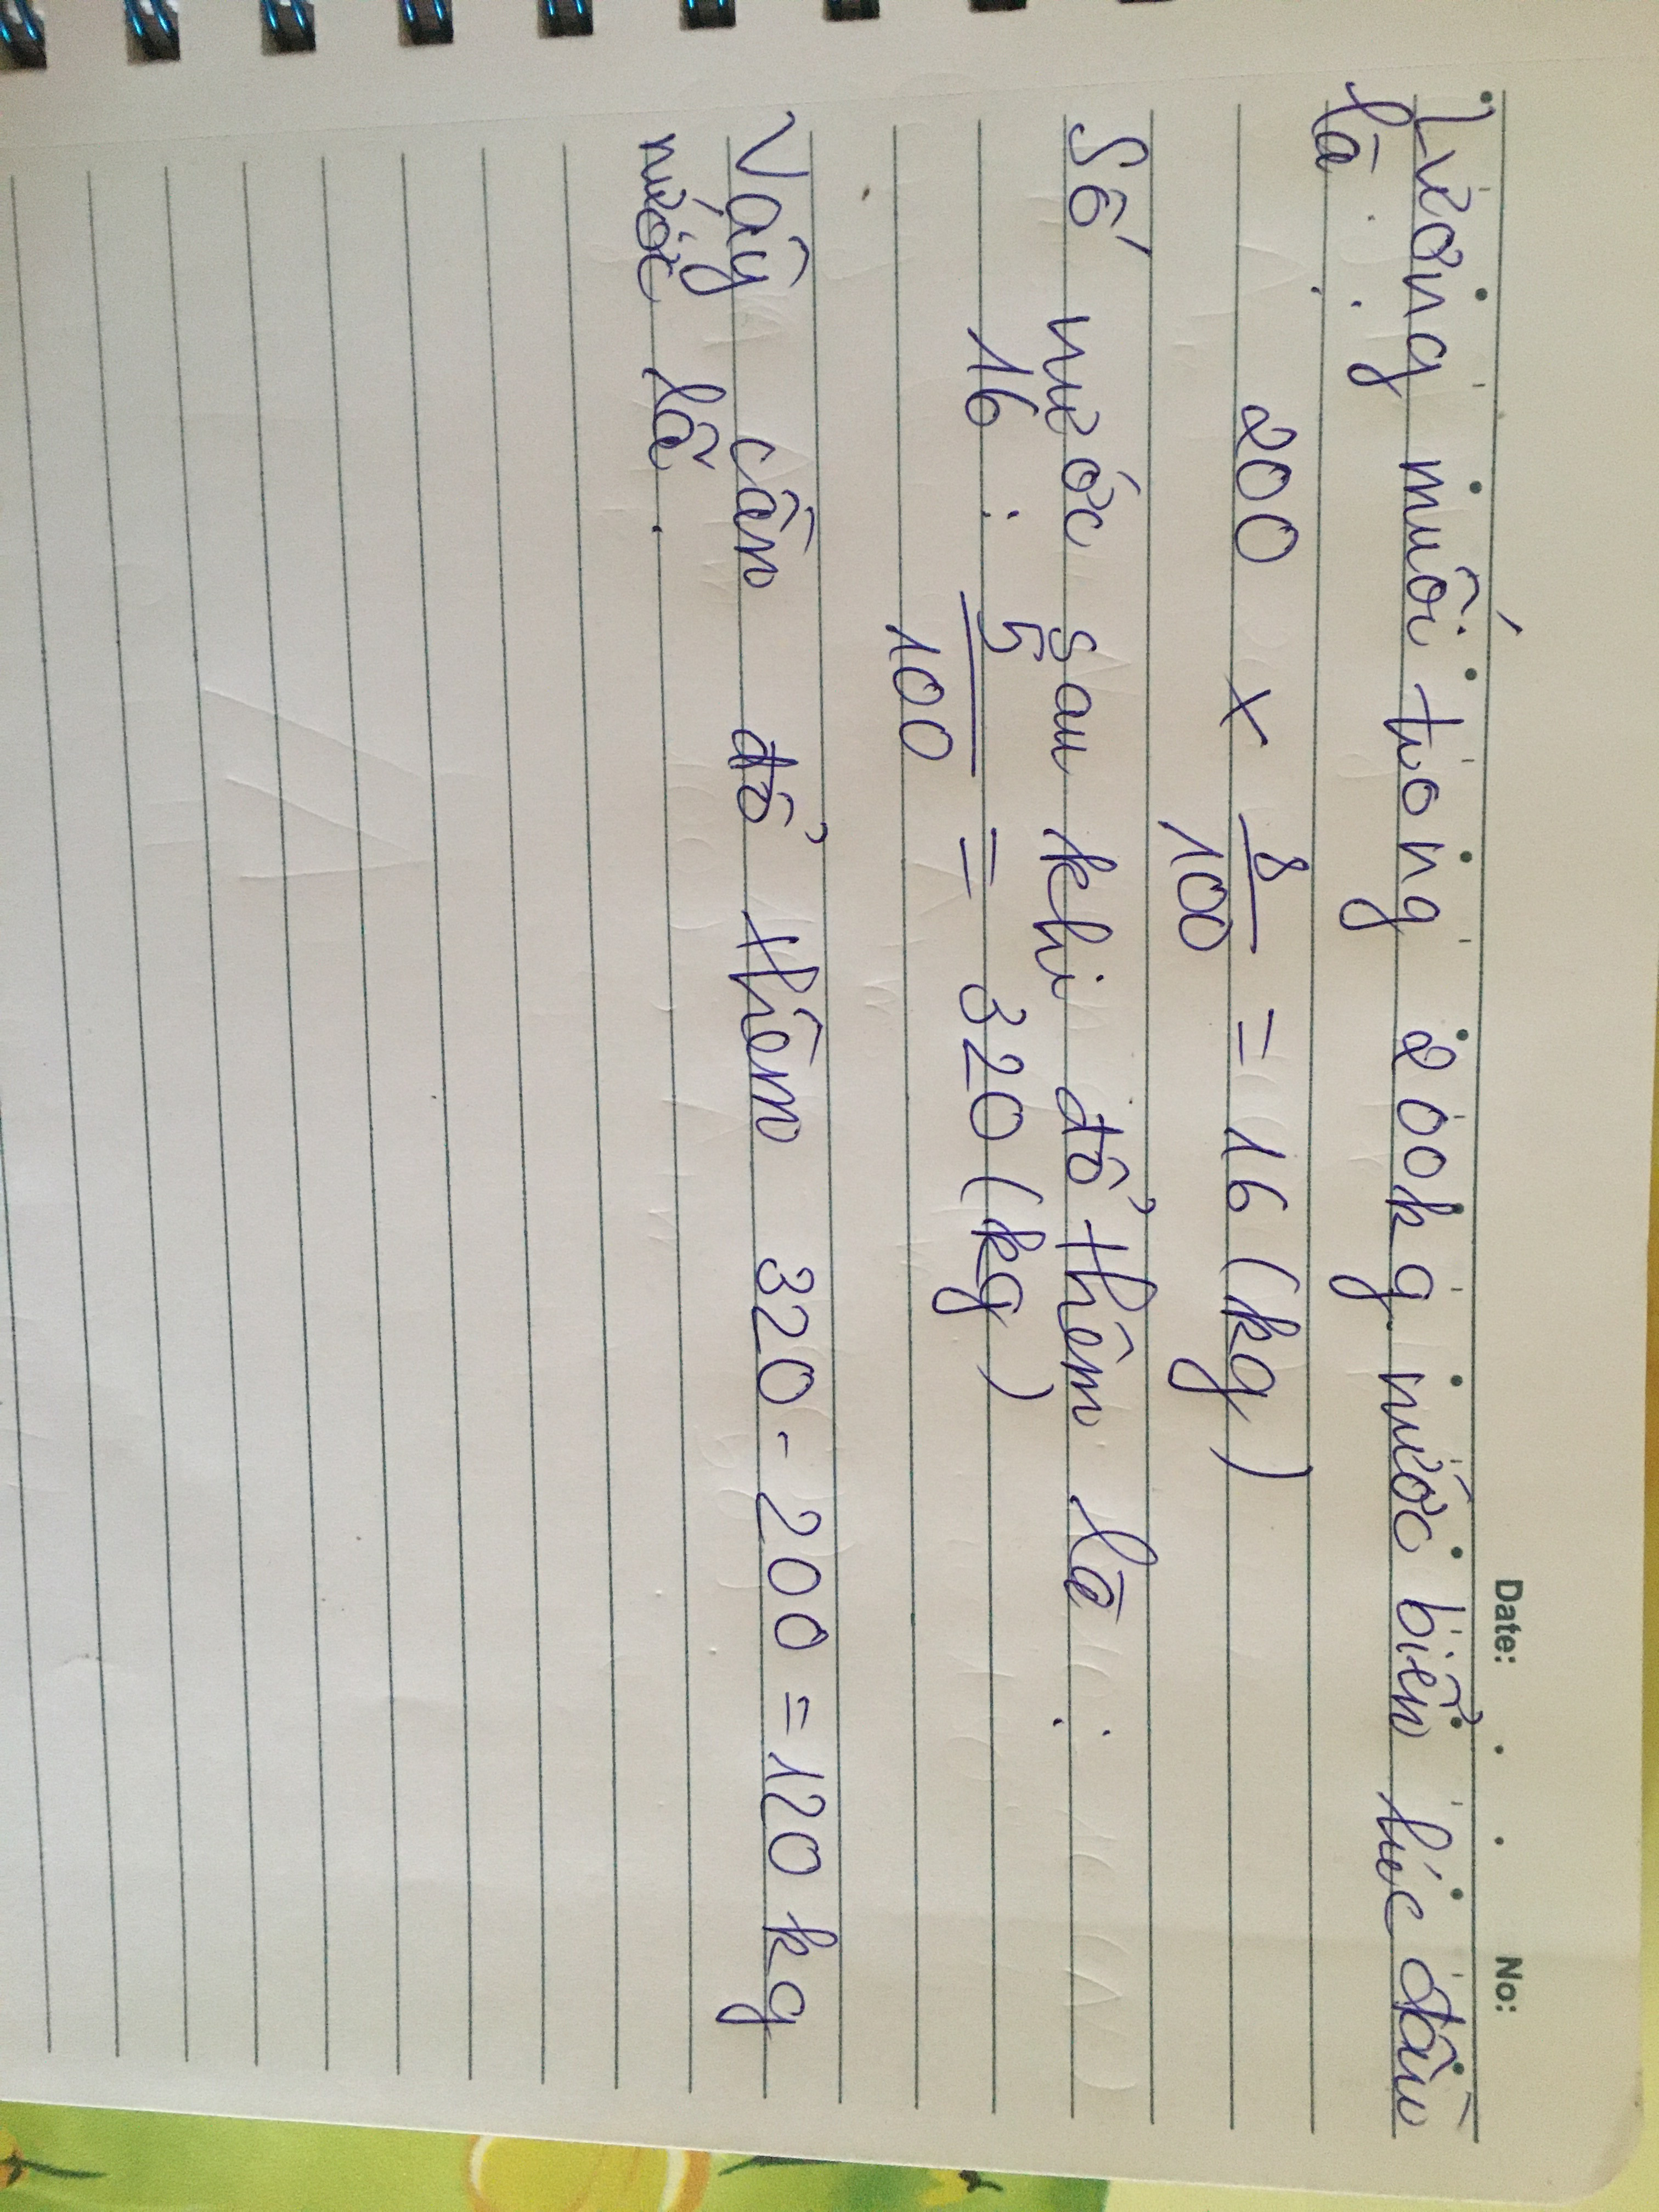 Date: No:
Lượng muối trong 200kg nước biển lúc đầu
là :
200 x 8/100 = 16 (kg)
Số nước sau khi đổ thêm là :
16 : 5/100 = 320 (kg)
Vậy cần đổ thêm 320 - 200 = 120 kg
nước lã .